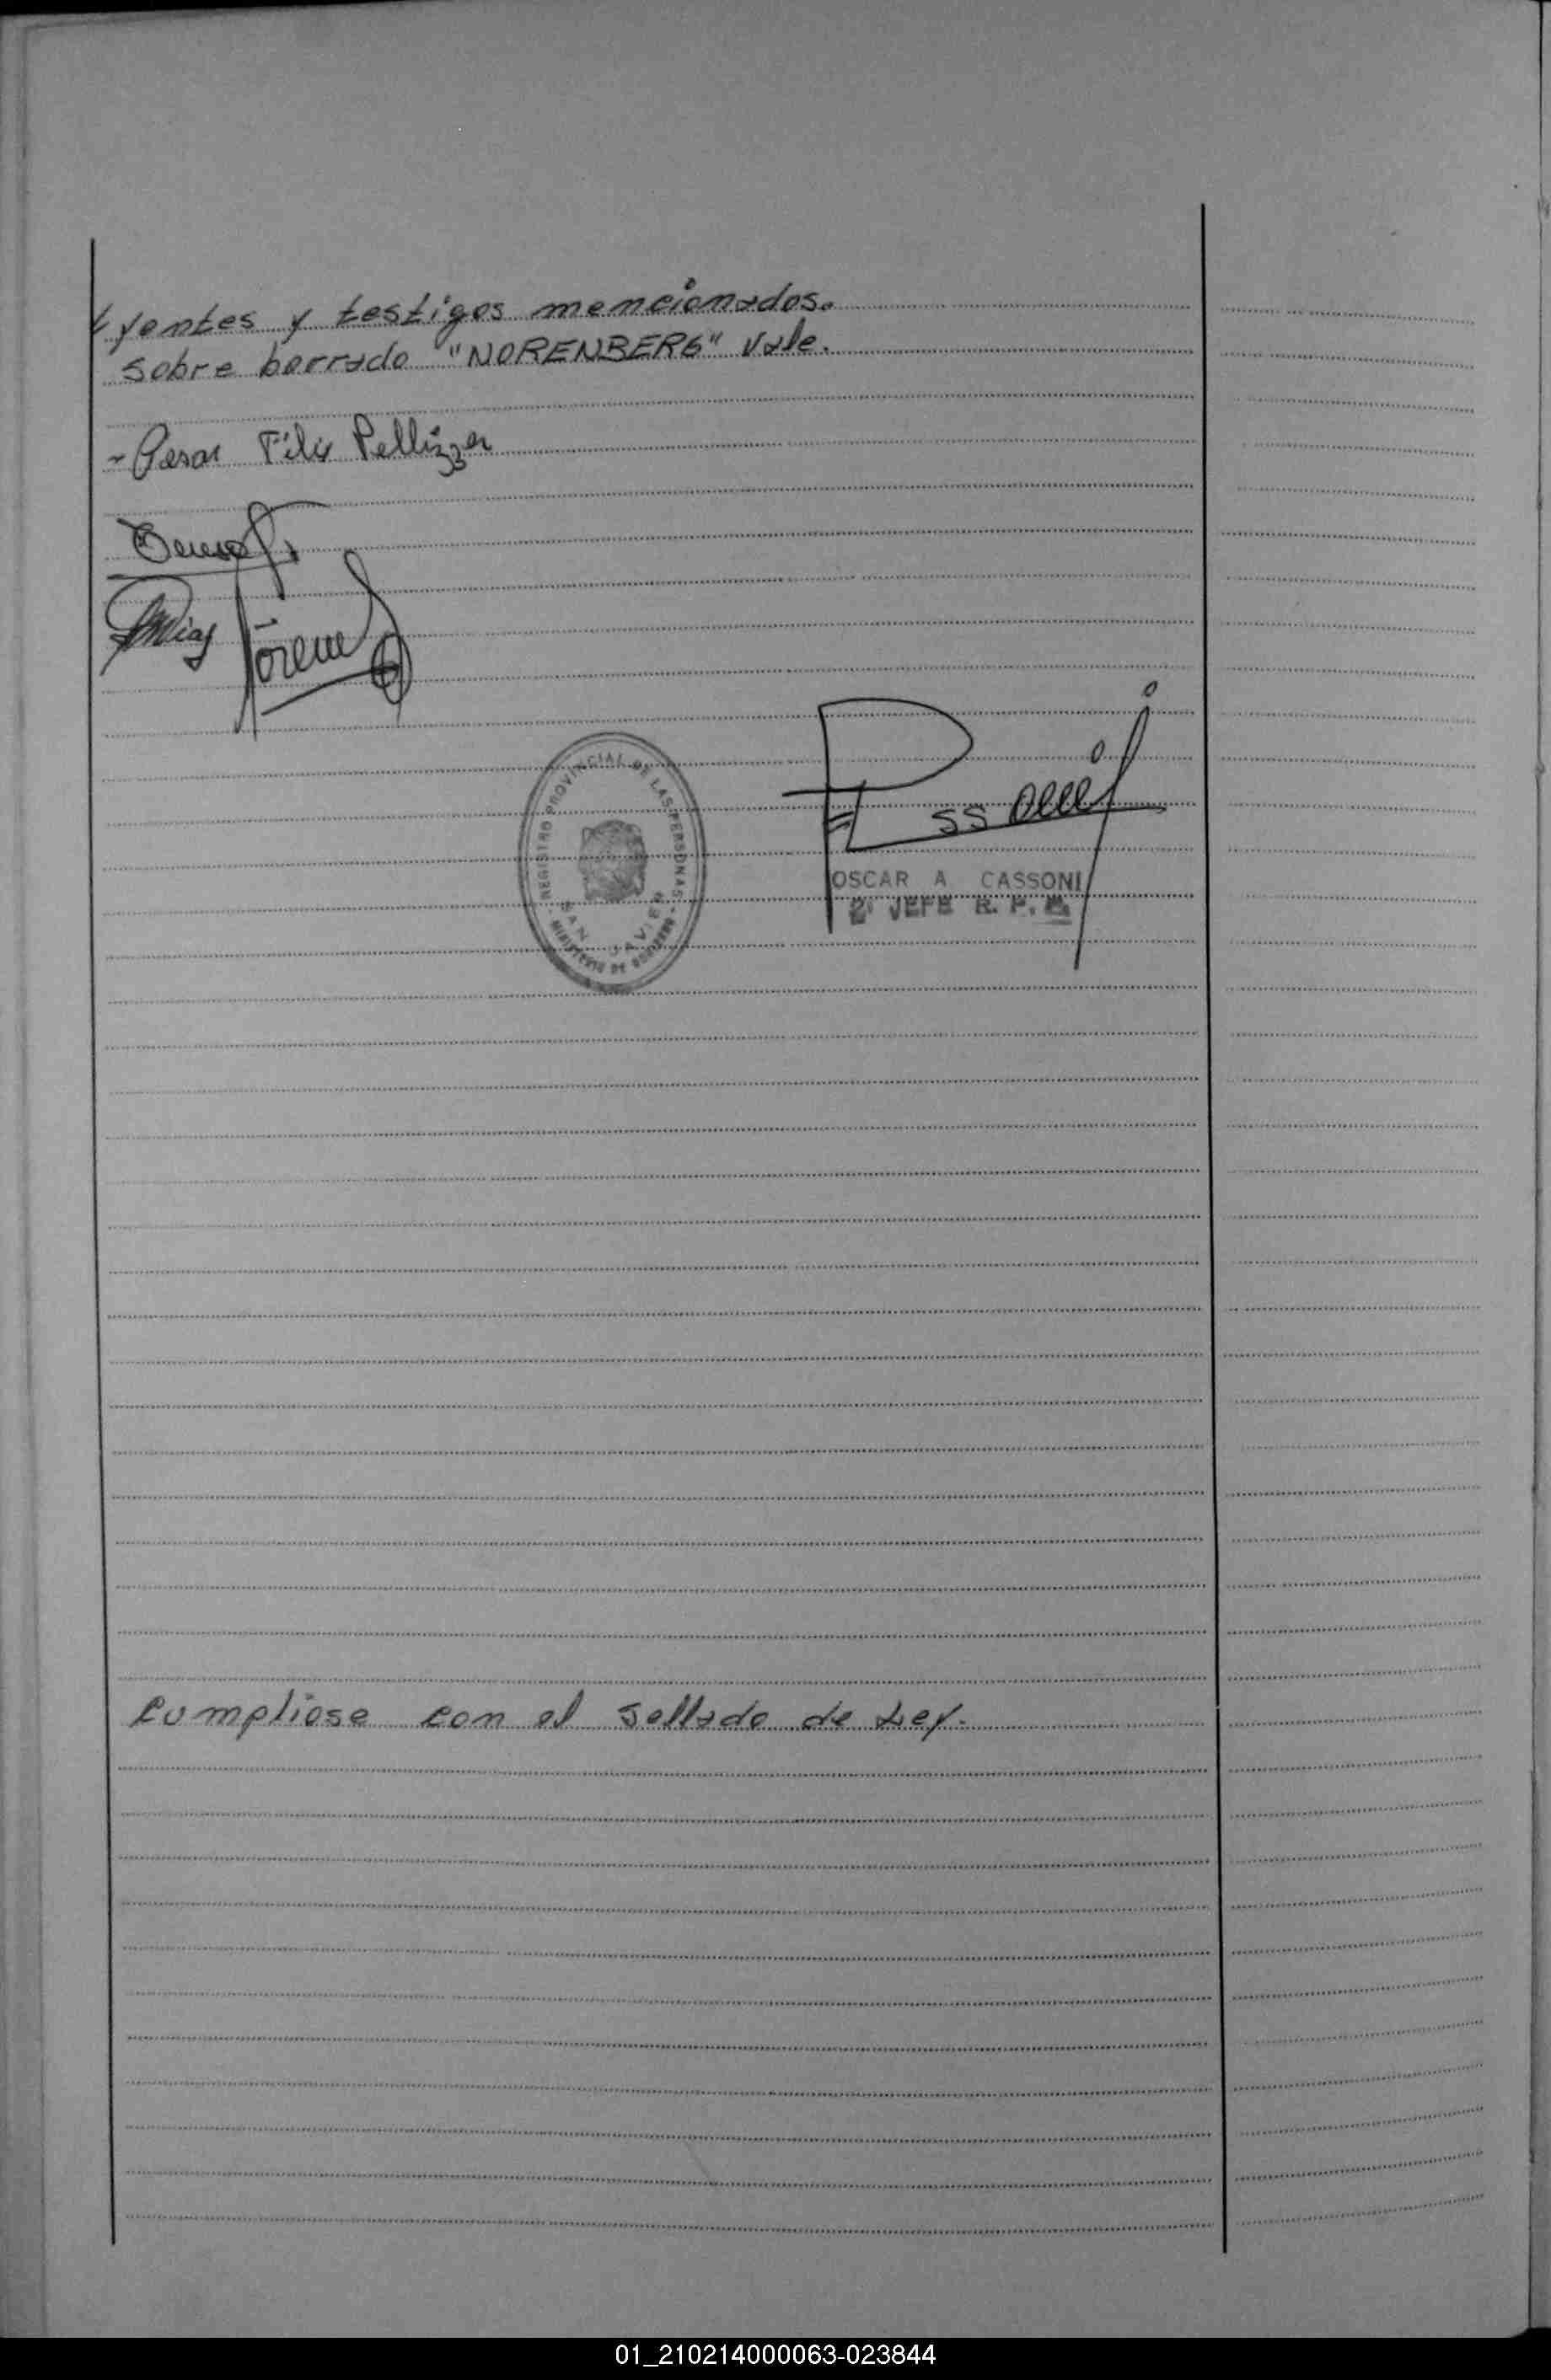 yentes y testigos mencionados.
sobre borrado "NORENBERG" Vale.
Pellizzer
Diaz
REGISTRO PROVINCIAL DE LAS PERSONAS
SAN JAVIER
MINISTERIO DE GOBIERNO
OSCAR A CASSONI
2º JEFE R. P.
Cumpliose con el sellado de Ley.
01_210214000063-023844